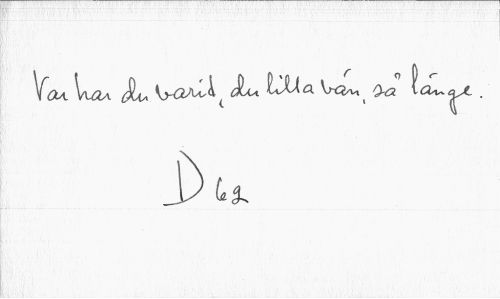 Var har du varit, du lilla vän, så länge.
D 62